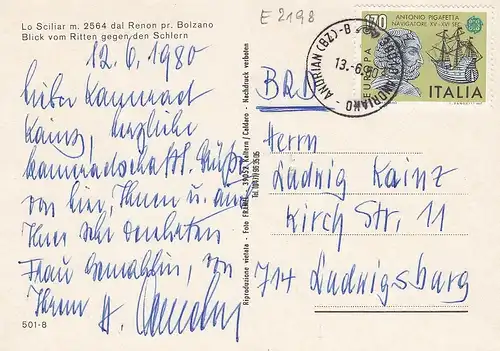 Lo Sciliar m. 2564 dal Renon pr. Bolzano
Blick vom Ritten gegen den Schlern
12. 6. 1980
Lieber Kamerad
Kainz, herzliche
kameradschaftl. Grüße
von hier, Ihnen u. auch
Ihrer sehr verehrten
Frau Gemahlin, von
Ihrem H.
501-8
Riproduzione vietata - Foto - 39052 Kaltern / Caldaro - Nachdruck verboten
E 2198
ANDRIAN (BZ) - B
13.-6.80
ANDRIANO
170
ANTONIO PIGAFETTA
NAVIGATORE XV-XVI SEC.
EUROPA
ITALIA
BRD
Herrn
Ludwig Kainz
Kirch Str. 11
714 Ludwigsburg